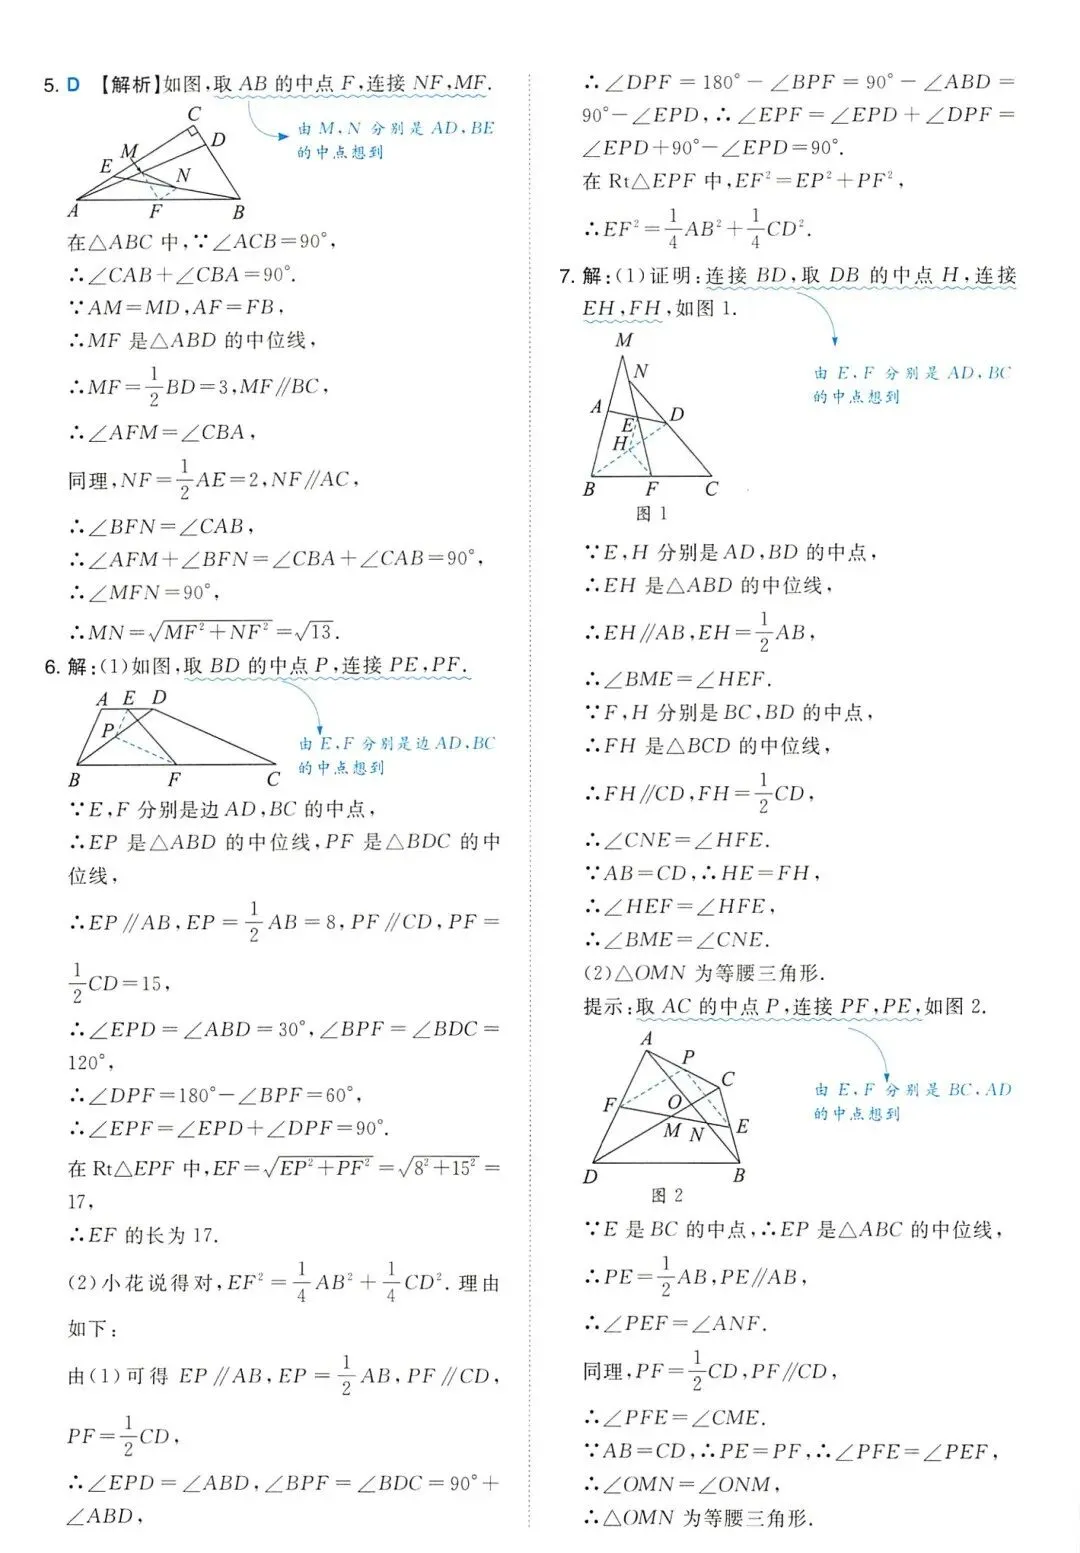 5. D 【解析】如图,取 AB 的中点 F,连接 NF,MF.
由 M,N 分别是 AD,BE
的中点想到
C
D
M
E
N
A
F
B
在△ABC 中,∵∠ACB=90°,
∴∠CAB+∠CBA=90°.
∵AM=MD,AF=FB,
∴MF 是△ABD 的中位线,
∴MF=1/2BD=3,MF∥BC,
∴∠AFM=∠CBA,
同理,NF=1/2AE=2,NF∥AC,
∴∠BFN=∠CAB,
∴∠AFM+∠BFN=∠CBA+∠CAB=90°,
∴∠MFN=90°,
∴MN=√(MF²+NF²)=√13.
6. 解:(1)如图,取 BD 的中点 P,连接 PE,PF.
A E D
P
B F C
由 E,F 分别是边 AD,BC
的中点想到
∵E,F 分别是边 AD,BC 的中点,
∴EP 是△ABD 的中位线,PF 是△BDC 的中
位线,
∴EP∥AB,EP=1/2AB=8,PF∥CD,PF=
1/2CD=15,
∴∠EPD=∠ABD=30°,∠BPF=∠BDC=
120°,
∴∠DPF=180°-∠BPF=60°,
∴∠EPF=∠EPD+∠DPF=90°.
在 Rt△EPF 中,EF=√(EP²+PF²)=√(8²+15²)=
17,
∴EF 的长为 17.
(2)小花说得对,EF²=1/4AB²+1/4CD². 理由
如下:
由(1)可得 EP∥AB,EP=1/2AB,PF∥CD,
PF=1/2CD,
∴∠EPD=∠ABD,∠BPF=∠BDC=90°+
∠ABD,
∴∠DPF=180°-∠BPF=90°-∠ABD=
90°-∠EPD,∴∠EPF=∠EPD+∠DPF=
∠EPD+90°-∠EPD=90°.
在 Rt△EPF 中,EF²=EP²+PF²,
∴EF²=1/4AB²+1/4CD².
7. 解:(1)证明:连接 BD,取 DB 的中点 H,连接
EH,FH,如图 1.
由 E,F 分别是 AD,BC
的中点想到
M
N
A
D
E
H
B F C
图 1
∵E,H 分别是 AD,BD 的中点,
∴EH 是△ABD 的中位线,
∴EH∥AB,EH=1/2AB,
∴∠BME=∠HEF.
∵F,H 分别是 BC,BD 的中点,
∴FH 是△BCD 的中位线,
∴FH∥CD,FH=1/2CD,
∴∠CNE=∠HFE.
∵AB=CD,∴HE=FH,
∴∠HEF=∠HFE,
∴∠BME=∠CNE.
(2)△OMN 为等腰三角形.
提示:取 AC 的中点 P,连接 PF,PE,如图 2.
由 E,F 分别是 BC,AD
的中点想到
A
P
C
F
O
M N E
D B
图 2
∵E 是 BC 的中点,∴EP 是△ABC 的中位线,
∴PE=1/2AB,PE∥AB,
∴∠PEF=∠ANF.
同理,PF=1/2CD,PF∥CD,
∴∠PFE=∠CME.
∵AB=CD,∴PE=PF,∴∠PFE=∠PEF,
∴∠OMN=∠ONM,
∴△OMN 为等腰三角形.